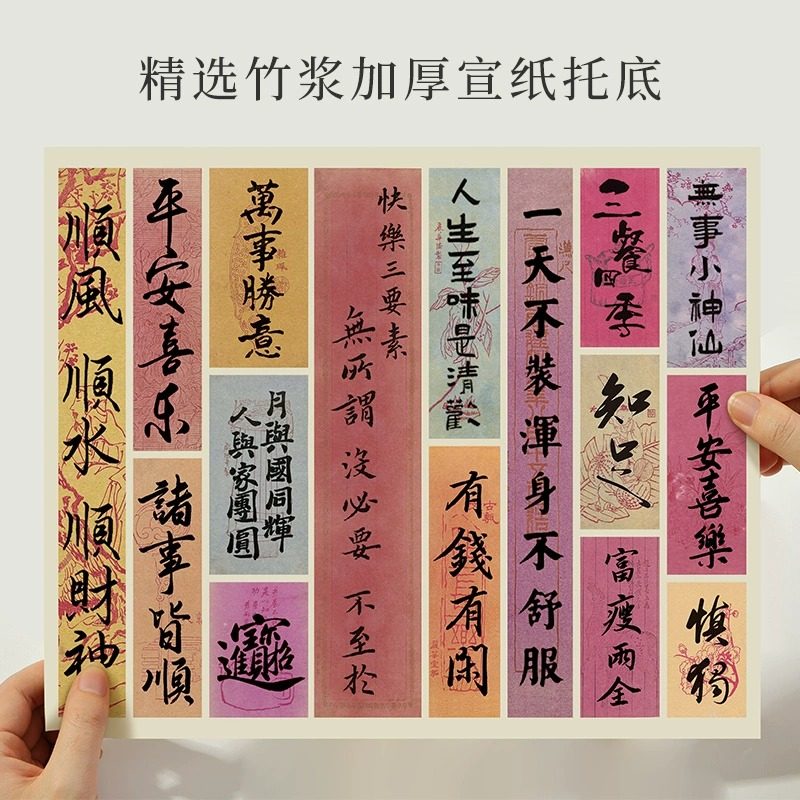 精选竹浆加厚宣纸托底
順風 順水 順財神
平安喜乐
諸事皆順
萬事勝意
月與國同輝
人與家團圓
招財進寶
快樂三要素
無所謂 沒必要 不至於
人生至味是清歡
有錢有閑
一天不裝渾身不舒服
三餐四季
知足
富瘦兩全
無事小神仙
平安喜樂
慎獨